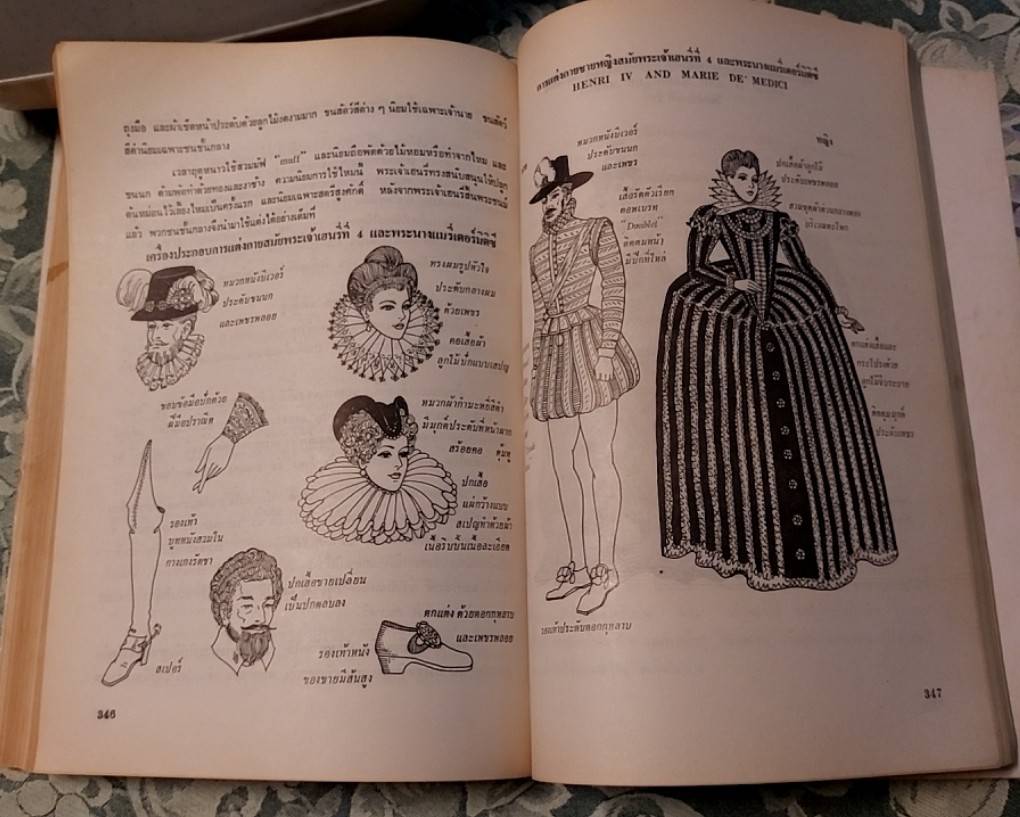 ถุงมือ และผ้าเช็ดหน้าประดับด้วยลูกไม้งดงามมาก ขนสัตว์สีต่าง ๆ นิยมใช้เฉพาะเจ้านาย ขนสัตว์
สีดำนิยมเฉพาะชนชั้นกลาง
เวลาฤดูหนาวใช้สวมมัฟ "muff" และนิยมถือพัดด้วยไม้หอมหรือทำจากไหม และ
ขนนก ด้ามพัดทำด้วยทองและงาช้าง ความนิยมการใช้ไหมนี้ พระเจ้าเฮนรีทรงสนับสนุนให้ปลูก
ต้นหม่อนไว้เลี้ยงไหมเป็นครั้งแรก และนิยมเฉพาะสตรีสูงศักดิ์ หลังจากพระเจ้าเฮนรีสิ้นพระชนม์
แล้ว พวกชนชั้นกลางจึงนำมาใช้แต่งได้อย่างเต็มที่
เครื่องประกอบการแต่งกายสมัยพระเจ้าเฮนรี่ที่ 4 และพระนางแมรี่เดอร์มิดิซี
หมวกหนังบิเวอร์
ประดับขนนก
และเพชรพลอย
ทรงผมรูปหัวใจ
ประดับกลางผม
ด้วยเพชร
คอเสื้อผ้า
ลูกไม้ปักแบบสเปญ
ขอบข้อมือปักด้วย
ฝีมือปราณีต
หมวกผ้ากำมะหยี่สีดำ
มีมุกด์ประดับที่หน้าผาก
สร้อยคอ ตุ้มหู
ปกเสื้อ
แผ่กว้างแบบ
สเปญทำด้วยผ้า
เนื้อริบบิ้นเนื้อละเอียด
รองเท้า
บูทหนังสวมใน
กางเกงรัดขา
สเปอร์
ปกเสื้อชายเปลี่ยน
เป็นปกตลบลง
ตกแต่ง ด้วยดอกกุหลาบ
และเพชรพลอย
รองเท้าหนัง
ของชายมีส้นสูง
346
การแต่งกายชายหญิงสมัยพระเจ้าเฮนรี่ที่ 4 และพระนางแมรี่เดอร์มิดิซี
HENRI IV AND MARIE DE' MEDICI
หมวกหนังบิเวอร์
ประดับขนนก
และเพชร
เสื้อรัดตัวเรียก
ดอพเบรท
"Doublet"
ติดคมหน้า
มีปีกที่ไหล่
รองเท้าประดับดอกกุหลาบ
หญิง
ปกเสื้อผ้าลูกไม้
ประดับเพชรพลอย
บริเวณตะโพก
ตกแต่งเสื้อและ
กระโปรงด้วย
ลูกไม้จีบระบาย
ติดดุมมุกด์
ประดับเพชร
347